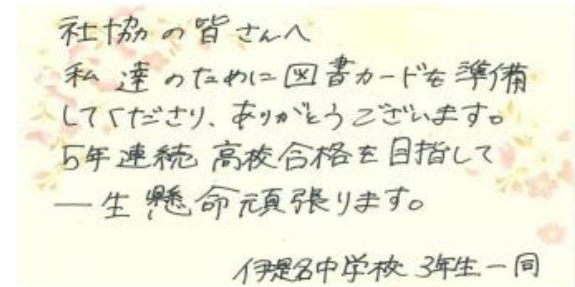 社協の皆さんへ
私達のために図書カードを準備
してくださり、ありがとうございます。
5年連続高校合格を目指して
一生懸命頑張ります。
伊是名中学校 3年生一同